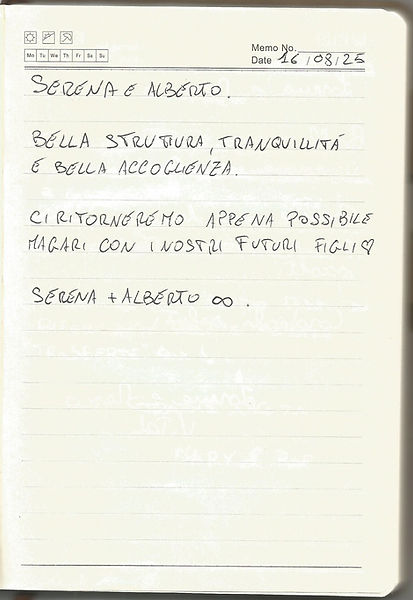 Memo No.
Mo Tu We Th Fr Sa Su
Date 16/08/25
SERENA E ALBERTO.
BELLA STRUTTURA, TRANQUILLITÁ
E BELLA ACCOGLIENZA.
CI RITORNEREMO APPENA POSSIBILE
MAGARI CON I NOSTRI FUTURI FIGLI ♡
SERENA + ALBERTO ∞.